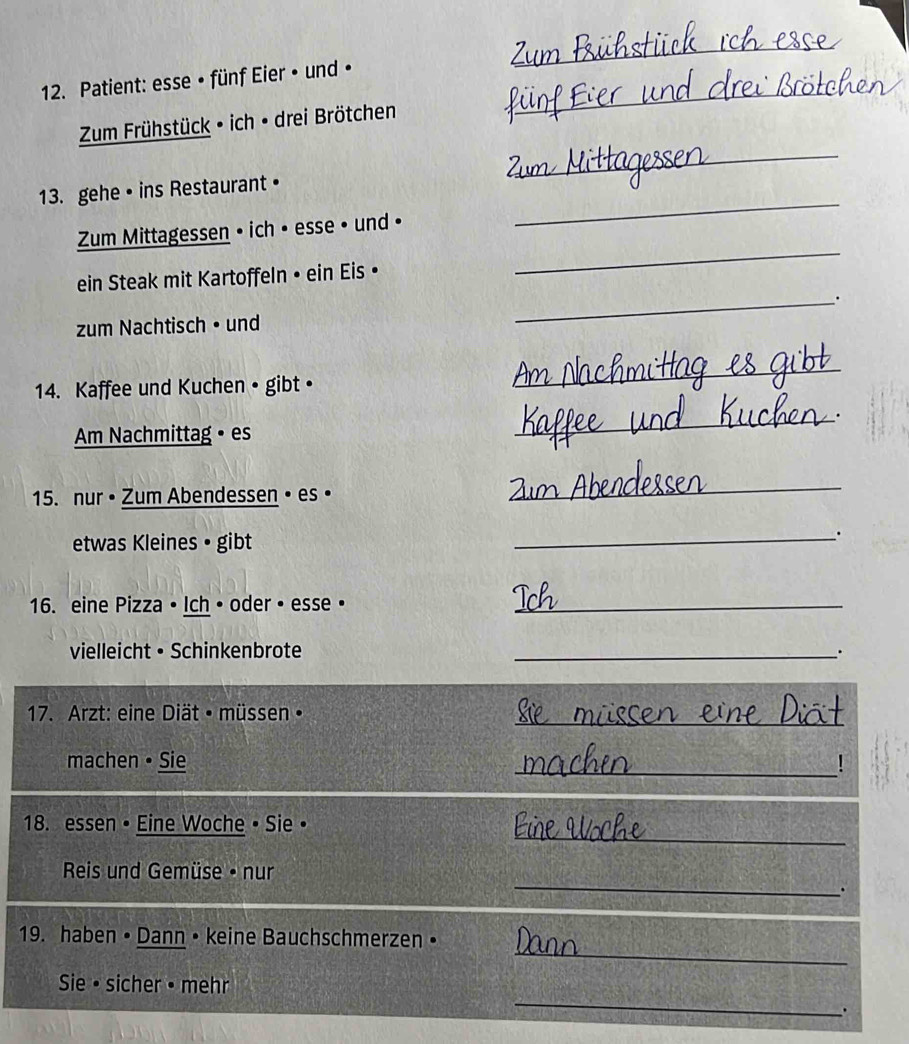 Zum Frühstück ich esse
12. Patient: esse • fünf Eier • und •
fünf Eier und drei Brötchen
Zum Frühstück • ich • drei Brötchen
Zum Mittagessen
13. gehe • ins Restaurant •
Zum Mittagessen • ich • esse • und •
ein Steak mit Kartoffeln • ein Eis •
.
zum Nachtisch • und
Am Nachmittag es gibt
14. Kaffee und Kuchen • gibt •
Kaffee und Kuchen.
Am Nachmittag • es
15. nur • Zum Abendessen • es •
Zum Abendessen
etwas Kleines • gibt
.
16. eine Pizza • Ich • oder • esse •
Ich
vielleicht • Schinkenbrote
.
17. Arzt: eine Diät • müssen •
Sie müssen eine Diät
machen • Sie
machen !
18. essen • Eine Woche • Sie •
Eine Woche
Reis und Gemüse • nur
.
19. haben • Dann • keine Bauchschmerzen •
Dann
Sie • sicher • mehr
.